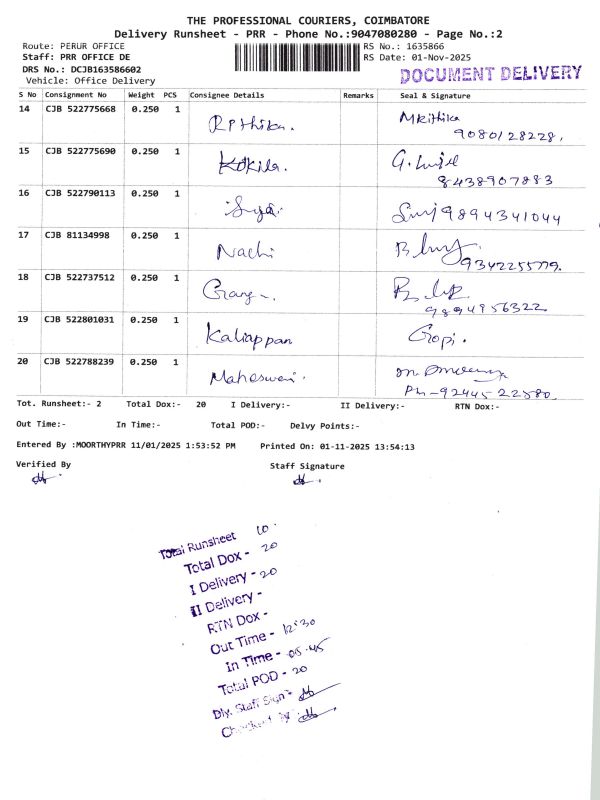 THE PROFESSIONAL COURIERS, COIMBATORE
Delivery Runsheet - PRR - Phone No.:9047080280 - Page No.:2
Route: PERUR OFFICE
Staff: PRR OFFICE DE
DRS No.: DCJB163586602
Vehicle: Office Delivery
RS No.: 1635866
RS Date: 01-Nov-2025
DOCUMENT DELIVERY
S No Consignment No Weight PCS Consignee Details Remarks Seal & Signature
14 CJB 522775668 0.250 1 Mkithika
9080128228.
15 CJB 522775690 0.250 1 Kokila.
8438907883
16 CJB 522790113 0.250 1 9894341044
17 CJB 81134998 0.250 1 Nachi
9342255779.
18 CJB 522737512 0.250 1
9894956322
19 CJB 522801031 0.250 1 Kaliappan Gopi.
20 CJB 522788239 0.250 1 Maheswari.
Ph-9244522580
Tot. Runsheet:- 2 Total Dox:- 20 I Delivery:- II Delivery:- RTN Dox:-
Out Time:- In Time:- Total POD:- Delvy Points:-
Entered By :MOORTHYPRR 11/01/2025 1:53:52 PM Printed On: 01-11-2025 13:54:13
Verified By Staff Signature
Total Runsheet 10
Total Dox - 20
I Delivery - 20
II Delivery -
RTN Dox -
Out Time - 12:30
In Time - 05:45
Total POD - 20
Dly. Staff Sign -
Checked By